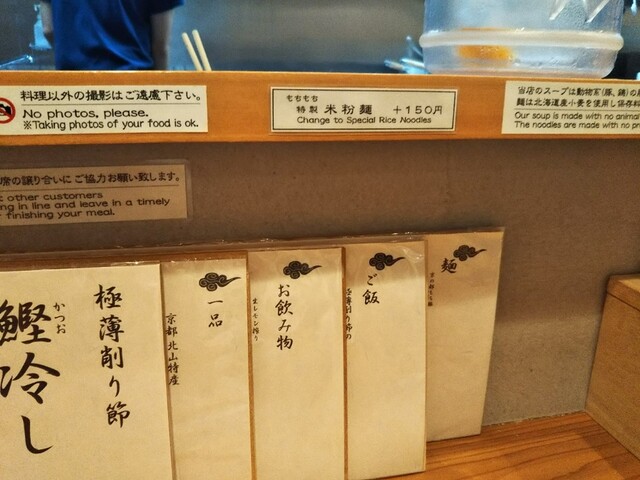 料理以外の撮影はご遠慮下さい。
No photos, please.
※Taking photos of your food is ok.
もちもち
特製 米粉麺 +150円
Change to Special Rice Noodles
当店のスープは動物系(豚、鶏)の
麺は北海道産小麦を使用し保存料
Our soup is made with no animal
The noodles are made with no pr
席の譲り合いにご協力お願い致します。
t other customers
ng in line and leave in a timely
r finishing your meal.
極薄削り節
かつお
鰹冷し
一品
京都 北山特産
お飲み物
生レモン搾り
ご飯
極薄削り節の
麺